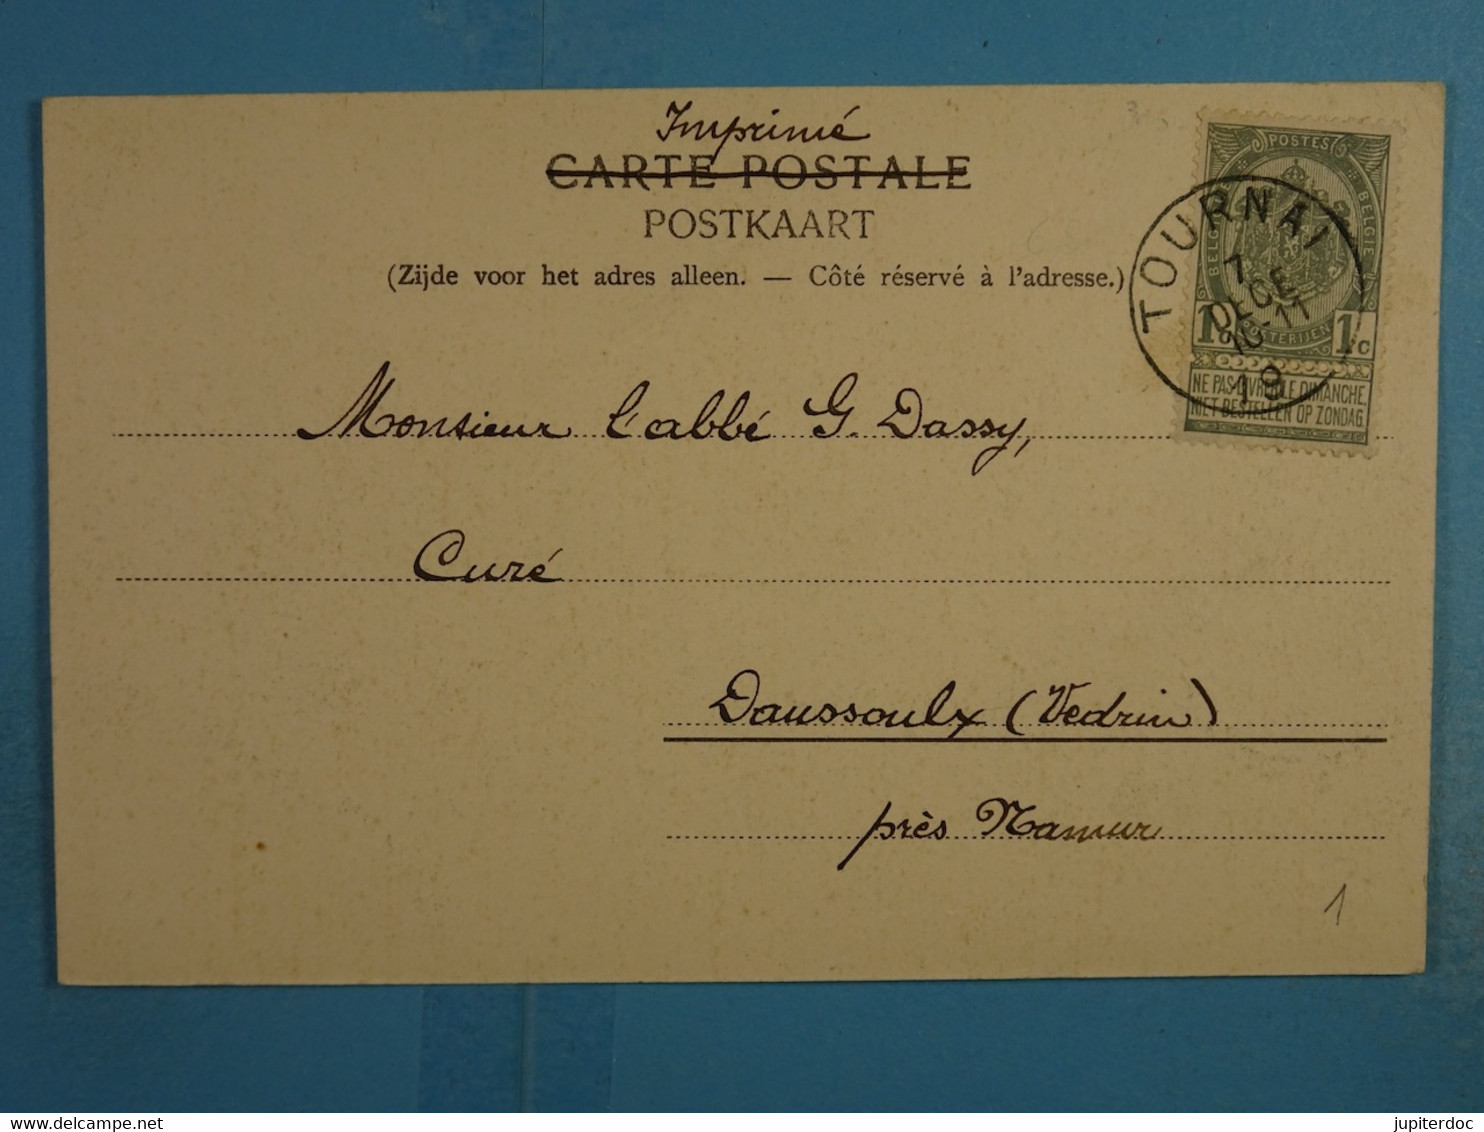 Imprimé
CARTE POSTALE
POSTKAART
(Zijde voor het adres alleen. — Côté réservé à l'adresse.)
POSTES
BELGIQUE BELGIE
POSTERIJEN
1c 1c
NE PAS LIVRER LE DIMANCHE.
NIET BESTELLEN OP ZONDAG.
TOURNAI
7
DECE
10-11
19
Monsieur l'abbé G. Dassy,
Curé
Daussoulx (Vedrin)
près Namur
1
delcampe.net
jupiterdoc